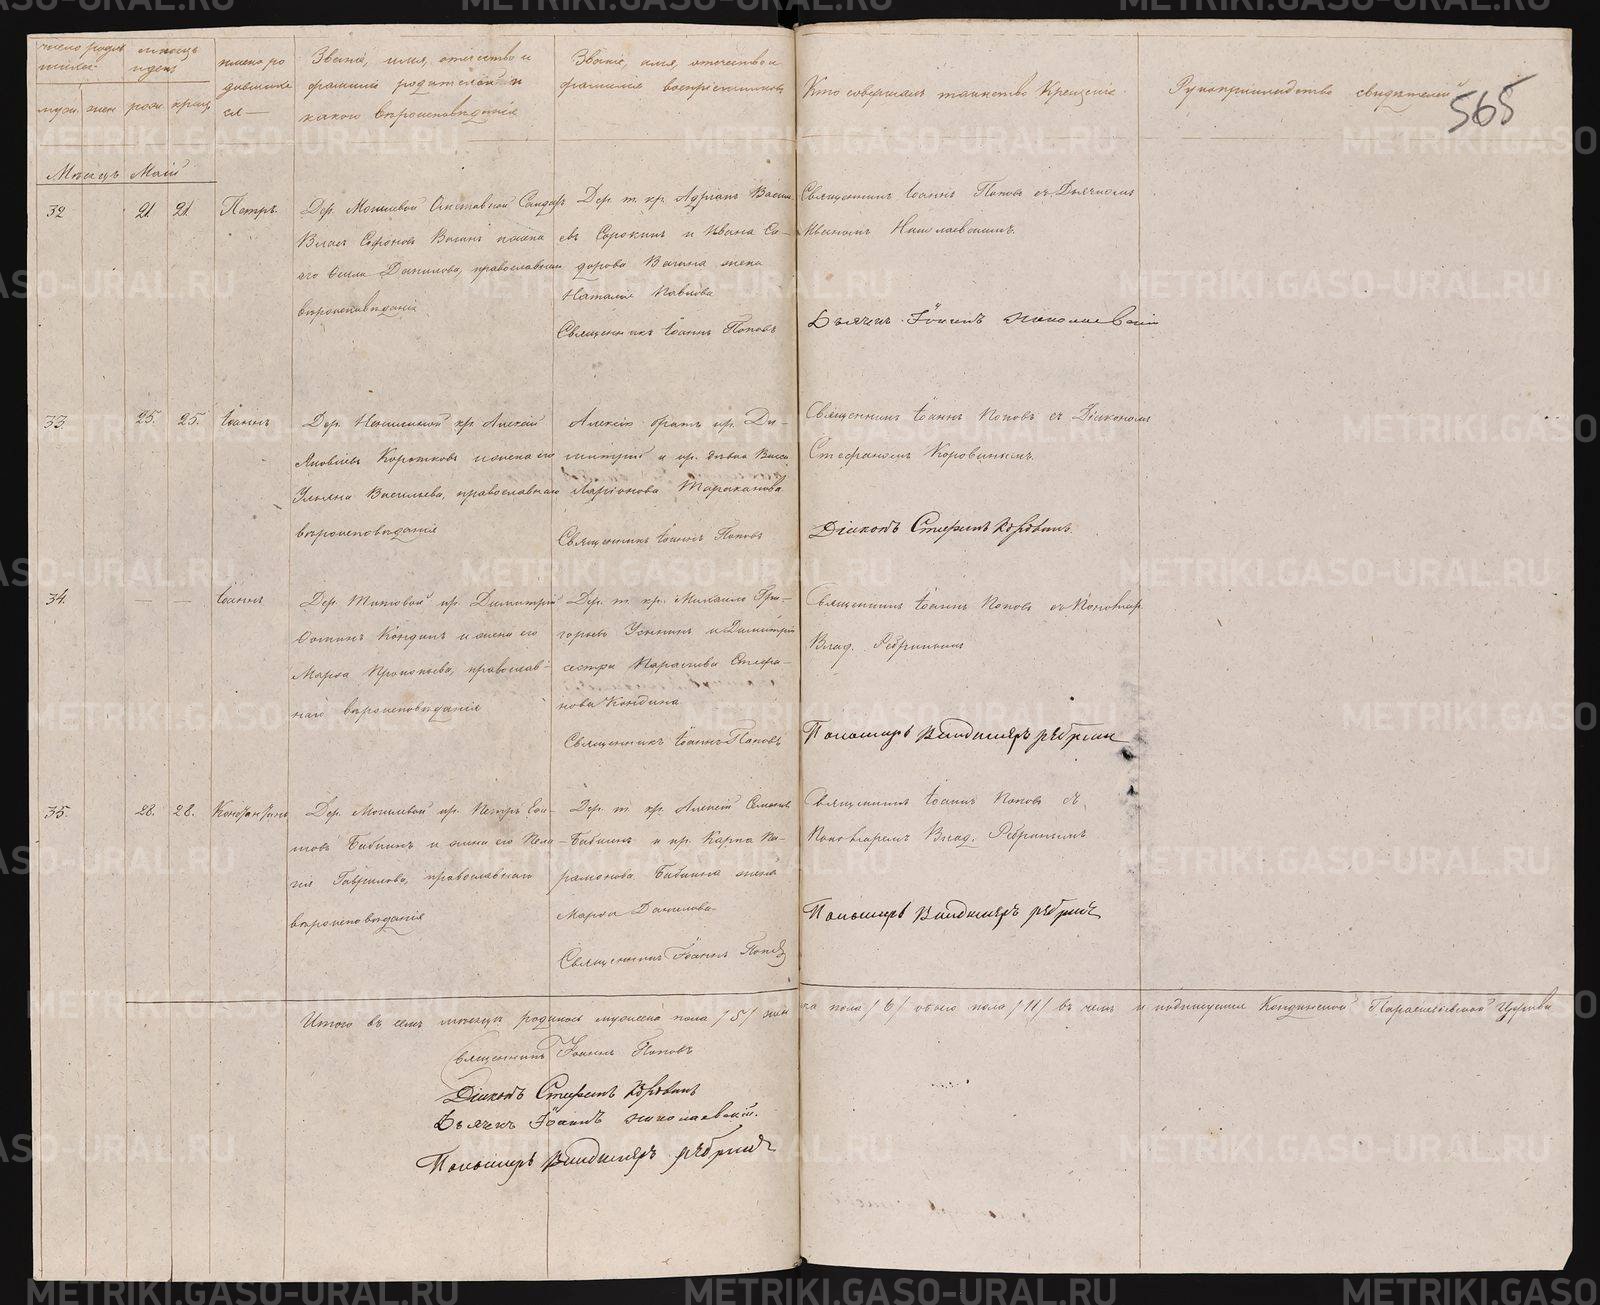 число родив шихся
мѣсяцъ и день
имена ро дившихся
Званіе, имя, отчество и фамилія родителей и какого вѣроисповѣданія
Званіе, имя, отчество и фамилія воспріемниковъ
Кто совершалъ таинство Крещенія
Рукоприкладство свидѣтелей
565
муж. жен. рож. крещ.
Мѣсяцъ Май
32 21 21 Петръ
Дер. Могилевой Отставной Солдатъ
Власъ Вагинъ и жена
его Данилова, православнаго
вѣроисповѣданія
Дер. т. кр. Адріанъ Васильевъ
Сорокинъ и Ивана Сидорова
Вагина жена
Наталія Павлова
Священникъ Іоаннъ Поповъ
Священникъ Іоаннъ Поповъ съ Дьячкомъ
Иваномъ Николаевскимъ
Дьячекъ Іоаннъ Николаевскій
33. 25. 25. Іоаннъ
Дер. кр. Алексѣй
Яковлевъ Коротковъ и жена его
Ульяна Васильева, православнаго
вѣроисповѣданія
Алексѣя братъ кр. Ди-
митрій и кр. дѣвка Васса
Ларіонова Тараканова
Священникъ Іоаннъ Поповъ
Священникъ Іоаннъ Поповъ съ Діакономъ
Стефаномъ Коровинымъ.
Діаконъ Стефанъ Коровинъ.
34. — — Іоаннъ
Дер. Титовой кр. Димитрій
Кондинъ и жена его
Марѳа Прокопьева, православ-
наго вѣроисповѣданія
Дер. т. кр. Михаило Гри-
горьевъ и Димитрія
сестра Параскева Стефа-
нова Кондина
Священникъ Іоаннъ Поповъ
Священникъ Іоаннъ Поповъ съ Пономар.
Влад. Ребринымъ
Пономарь Владимиръ Ребринъ
35. 28. 28. Константинъ
Дер. Могилевой кр. Петръ
Бабкинъ и жена его Пела-
гія Гаврилова, православнаго
вѣроисповѣданія
Дер. т. кр. Алексѣй Семеновъ
Бабкинъ и кр. Карпа Па-
рамонова Бабкина жена
Марѳа Данилова
Священникъ Іоаннъ Поповъ
Священникъ Іоаннъ Поповъ съ
Пономаремъ Влад. Ребринымъ
Пономарь Владимиръ Ребринъ
Итого въ семъ мѣсяцѣ родилося мужеска пола /5/ женска пола /6/ обоего пола /11/ въ чемъ и подписуемся Кондинской Параскевіевской Церкви
Священникъ Іоаннъ Поповъ
Діаконъ Стефанъ Коровинъ
Дьячекъ Іоаннъ Николаевскій.
Пономарь Владимиръ Ребринъ
METRIKI.GASO-URAL.RU